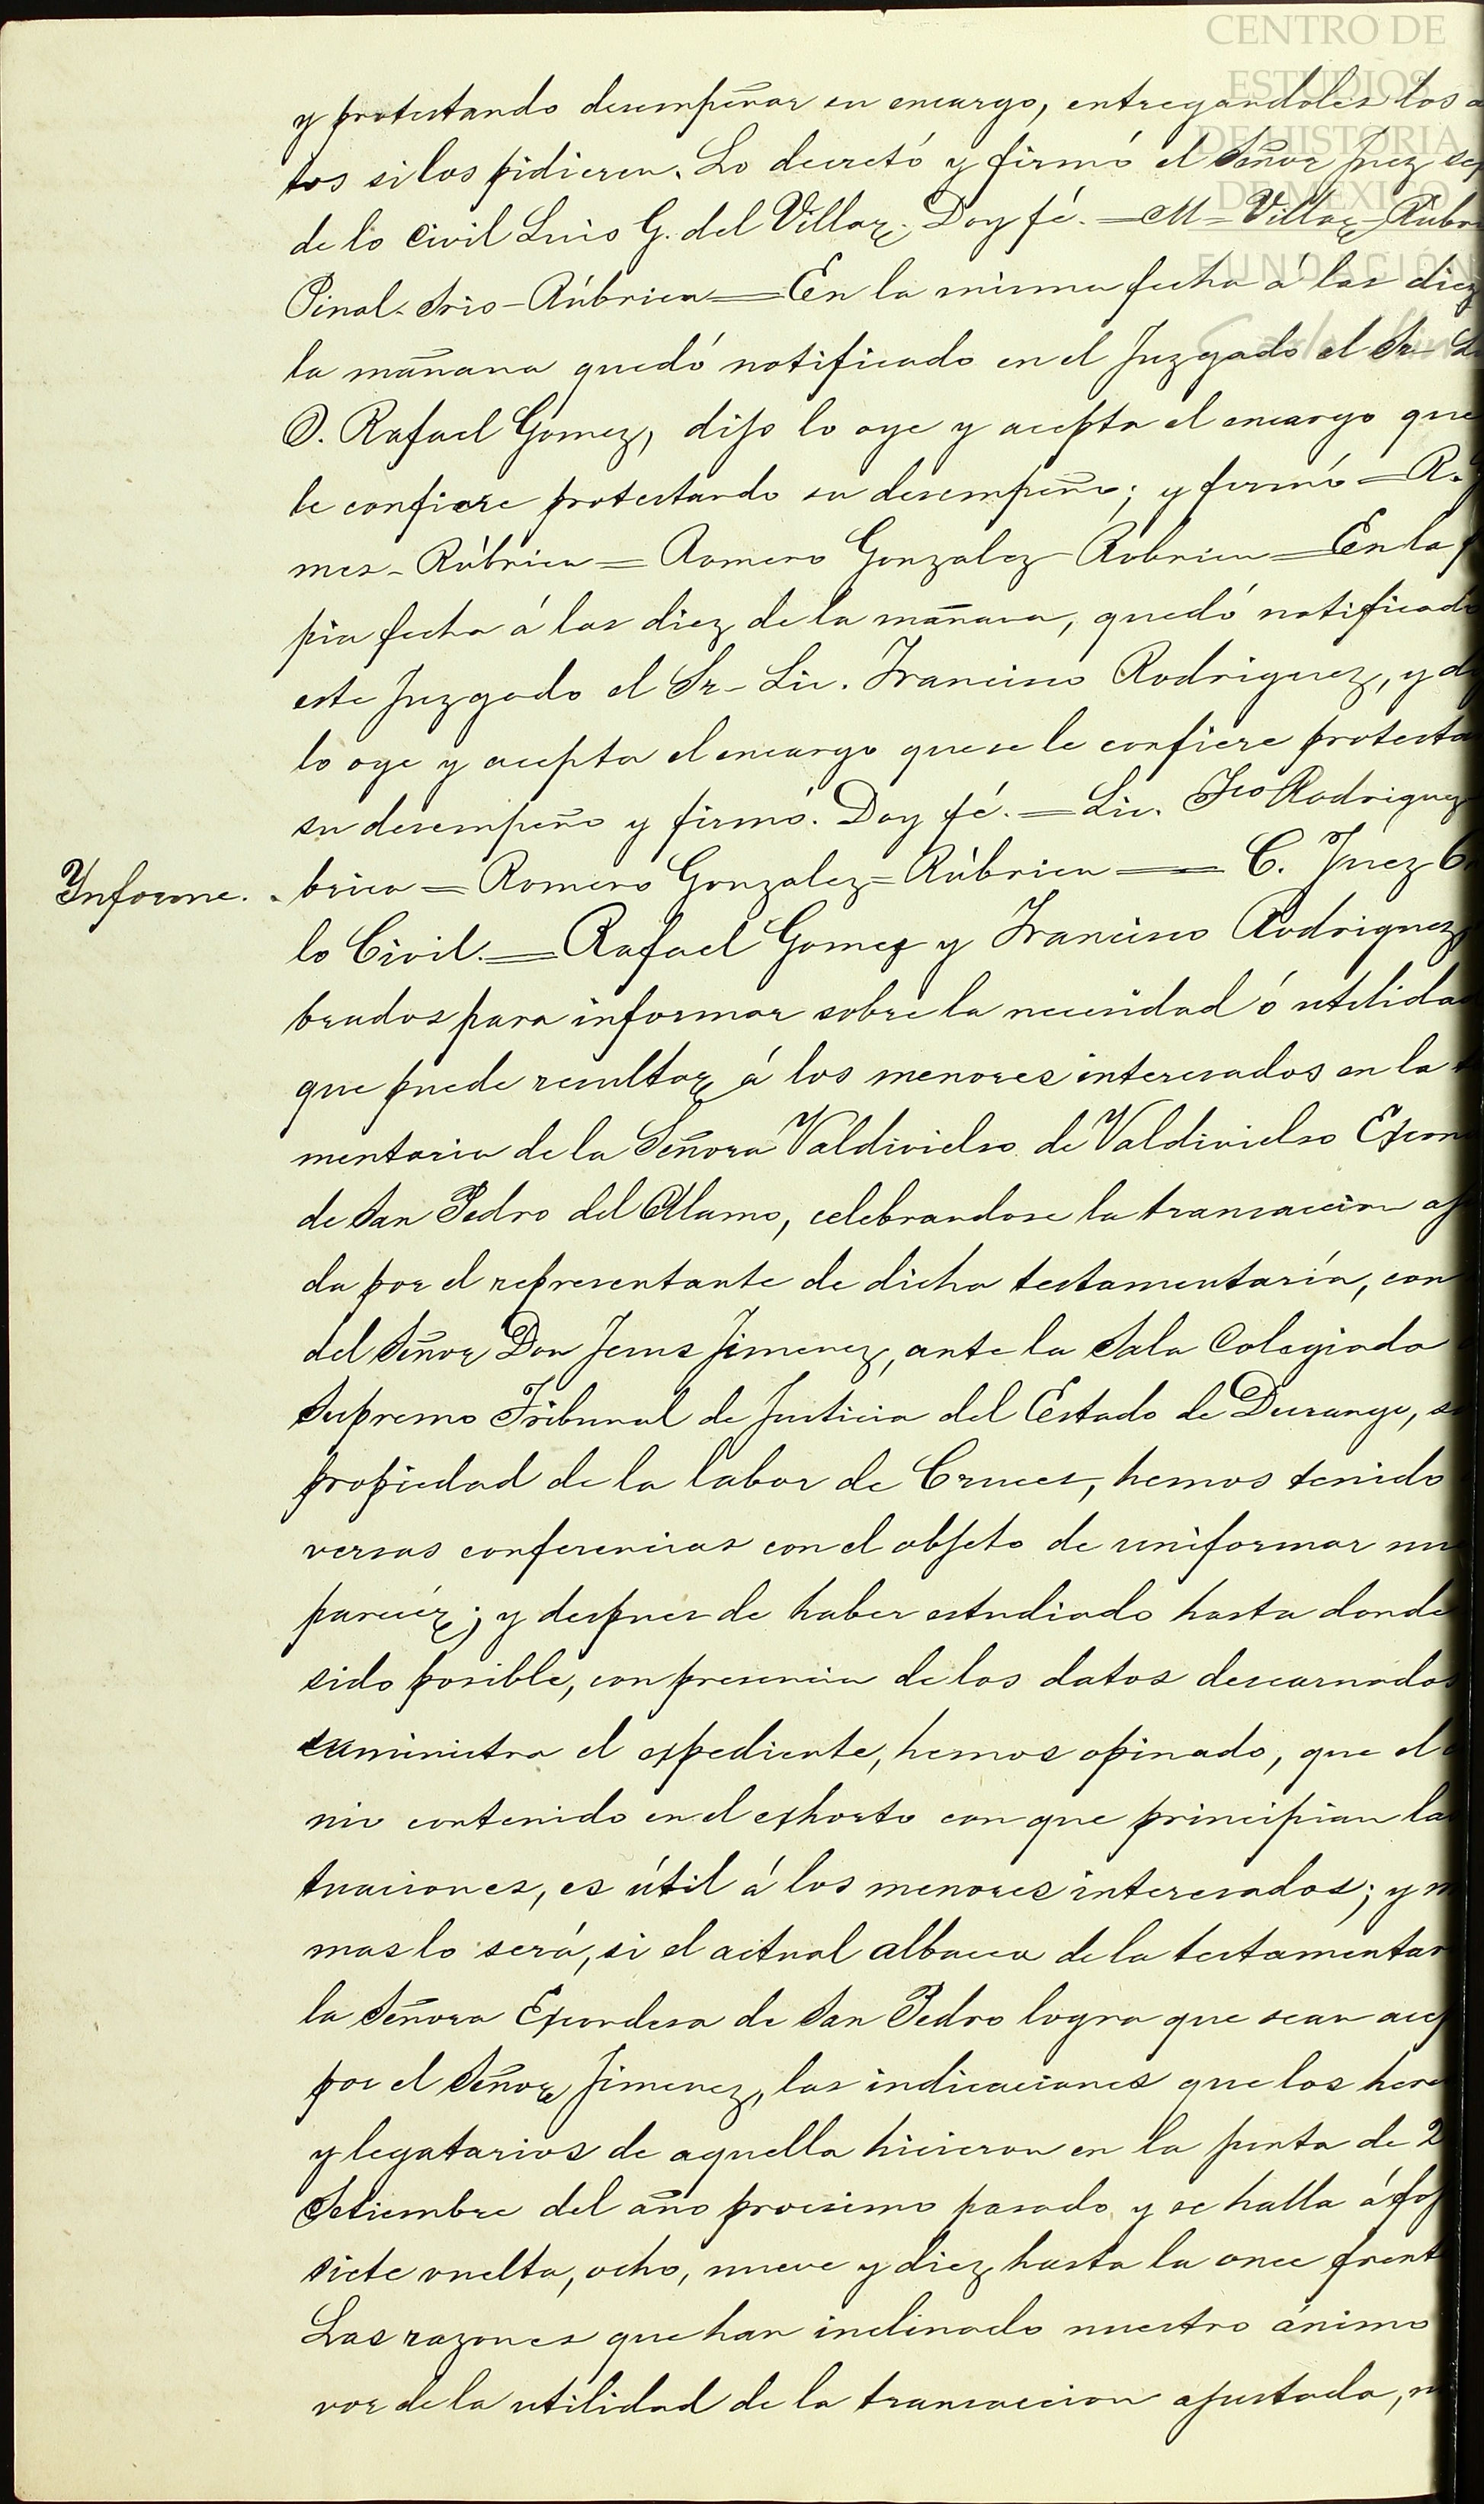 CENTRO DE
ESTUDIOS
DE HISTORIA
DE MEXICO
FUNDACIÓN
y protestando desempeñar su encargo, entregandoles los a
tos si los pidieren. Lo decretó y firmó el Señor Juez se
de lo Civil Luis G. del Villar. Doy fé. = M = Villar = Rubri
Pinal. Srio - Rúbrica = En la misma fecha á las diez
la mañana quedó notificado en el Juzgado el Sr. L
D. Rafael Gomez, dijo lo oye y acepta el encargo que
le confiere protestando su desempeño; y firmó = R.
mes - Rúbrica = Romero Gonzalez - Rubrica = En la
pia fecha á las diez de la mañana, quedó notificado
este Juzgado el Sr. Lic. Francisco Rodriguez, y d
lo oye y acepta el encargo que se le confiere protesta
su desempeño y firmó. Doy fé. = Lic. Fco Rodriguez
Informe. brica = Romero Gonzalez = Rúbrica = C. Juez 6
lo Civil. = Rafael Gomez y Francisco Rodriguez
brados para informar sobre la necesidad ó utilida
que puede resultar á los menores interesados en la
mentaria de la Señora Valdivielso de Valdivielso Excon
de San Pedro del Alamo, celebrandose la transaccion aj
da por el representante de dicha testamentaría, con
del Señor Don Jesus Jimenez, ante la Sala Colegiada
Supremo Tribunal de Justicia del Estado de Durango, s
propiedad de la labor de Cruces, hemos tenido
versas conferencias con el objeto de uniformar nu
parecér; y despues de haber estudiado hasta donde
sido posible, con presencia de los datos descarnados
suministra el expediente, hemos opinado, que el
nio contenido en el exhorto con que principian la
tuaciones, es útil á los menores interesados; y m
mas lo será, si el actual albacea de la testamentar
la Señora Excondesa de San Pedro logra que sean acep
por el Señor Jimenez, las indicaciones que los here
y legatarios de aquella hicieron en la junta de 2
Setiembre del año procsimo pasado y se halla á foj
siete vuelta, ocho, nueve y diez hasta la once frent
Las razones que han inclinado nuestro ánimo
vor de la utilidad de la transaccion ajustada,